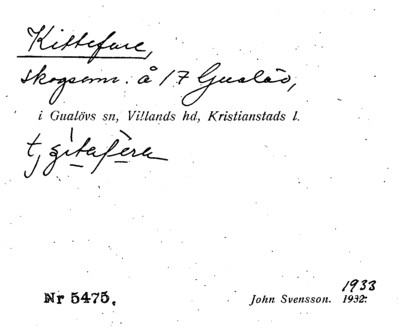 Kittefure,
skogsom. å 17 Gualöv,
i Gualövs sn, Villands hd, Kristianstads l.
Nr 5475.
1933
John Svensson. 1932.